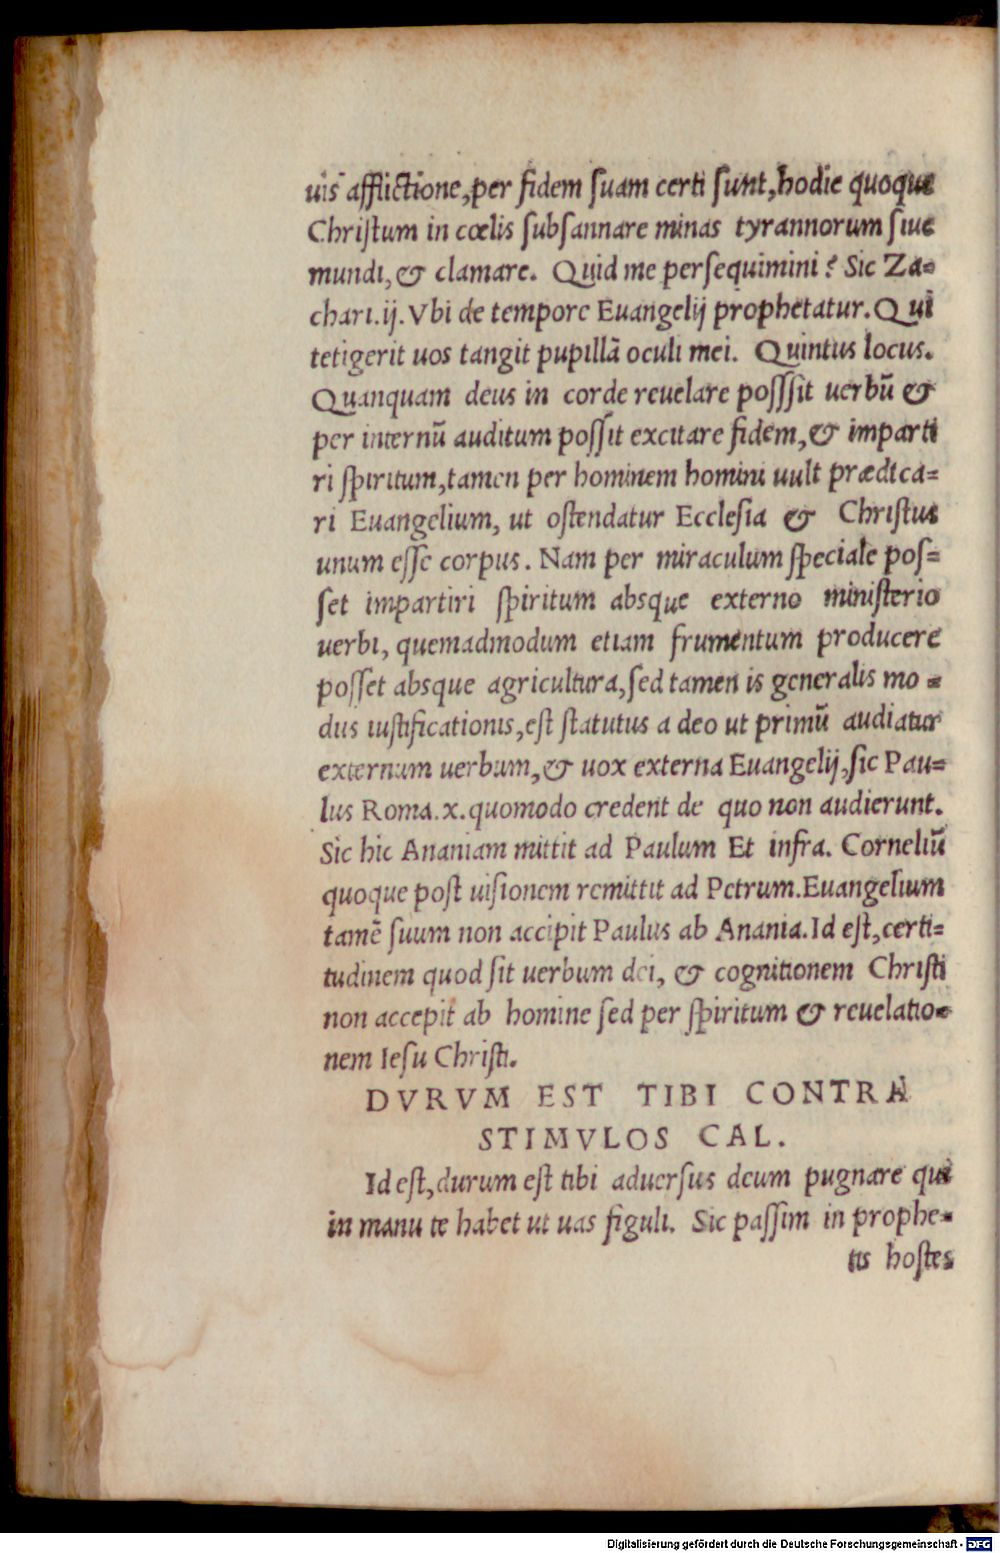 uis afflictione, per fidem suam certi sunt, hodie quoque
Christum in cœlis subsannare minas tyrannorum siue
mundi, & clamare. Quid me persequimini? Sic Za=
chari. ij. Vbi de tempore Euangelij prophetatur. Qui
tetigerit uos tangit pupillã oculi mei. Quintus locus.
Quanquam deus in corde reuelare posssit uerbũ &
per internũ auditum possit excitare fidem, & imparti
ri spiritum, tamen per hominem homini uult prædica=
ri Euangelium, ut ostendatur Ecclesia & Christus
unum esse corpus. Nam per miraculum speciale pos=
set impartiri spiritum absque externo ministerio
uerbi, quemadmodum etiam frumentum producere
posset absque agricultura, sed tamen is generalis mo =
dus iustificationis, est statutus a deo ut primũ audiatur
externum uerbum, & uox externa Euangelij, sic Pau=
lus Roma. x. quomodo credent de quo non audierunt.
Sic hic Ananiam mittit ad Paulum Et infra. Corneliũ
quoque post uisionem remittit ad Petrum. Euangelium
tamẽ suum non accipit Paulus ab Anania. Id est, certi=
tudinem quod sit uerbum dei, & cognitionem Christi
non accepit ab homine sed per spiritum & reuelatio=
nem Iesu Christi.
DVRVM EST TIBI CONTRA
STIMVLOS CAL.
Id est, durum est tibi aduersus deum pugnare qui
in manu te habet ut uas figuli. Sic passim in prophe=
tis hostes
Digitalisierung gefördert durch die Deutsche Forschungsgemeinschaft - DFG